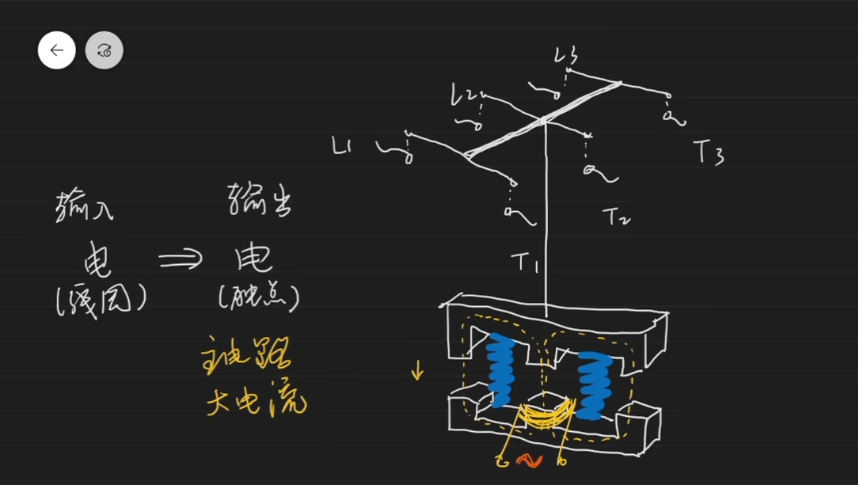 L3
L2
L1
T3
T2
T1
输入
输出
电 ⇒ 电
(线圈)
(触点)
主电路
大电流